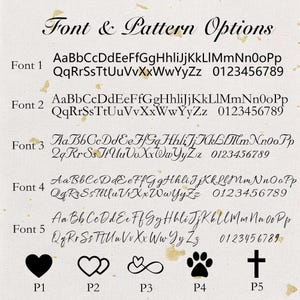 Font & Pattern Options
Font 1
AaBbCcDdEeFfGgHhIiJjKkLlMmNn0oPp
QqRrSsTtUuVvXxWwYyZz 0123456789
Font 2
AaBbCcDdEeFfGgHhliJjKkLlMmNn0oPp
QqRrSsTtUuVvXxWwYyZz 0123456789
Font 3
AaBbCcDdEeFfGgHhIiJjKkLlMmNn0oPp
QqRrSsTtUuVvXxWwYyZz 0123456789
Font 4
AaBbCcDdEeFfGgHhIiJjKkLlMmNn0oPp
QqRrSsTtUuVvXxWwYyZz 0123456789
Font 5
AaBbCcDdEeFfGgHhIiJjKkLlMmNn0oPp
QqRrSsTtUuVvXxWwYyZz 0123456789
P1 P2 P3 P4 P5